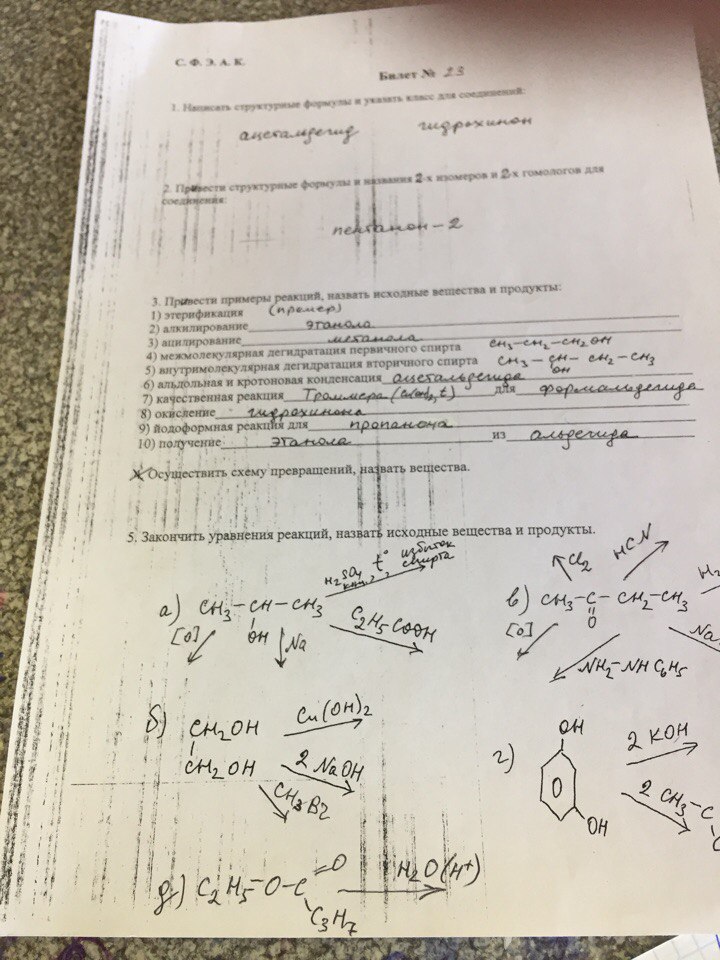 С. Ф. Э. А. К.
Билет № 23
1. Написать структурные формулы и указать класс для соединений:
ацетальдегид гидрохинон
2. Привести структурные формулы и названия 2-х изомеров и 2-х гомологов для
соединения:
пентанон-2
3. Привести примеры реакций, назвать исходные вещества и продукты:
1) этерификация (пример)
2) алкилирование этанола
3) ацилирование метанола
4) межмолекулярная дегидратация первичного спирта CH3-CH2-CH2OH
5) внутримолекулярная дегидратация вторичного спирта CH3-CH-CH2-CH3
OH
6) альдольная и кротоновая конденсация ацетальдегида
7) качественная реакция Троммера (Cu(OH)2, t) для формальдегида
8) окисление гидрохинона
9) йодоформная реакция для пропанона
10) получение этанола из альдегида
Осуществить схему превращений, назвать вещества.
5. Закончить уравнения реакций, назвать исходные вещества и продукты.
H2SO4 конц., t° избыток спирта
а) CH3-CH-CH3
OH
C2H5COOH
[O]
Na
Cl2
HCN
H2
в) CH3-C-CH2-CH3
O
[O]
Na
NH2-NHC6H5
б) CH2OH
CH2OH
Cu(OH)2
2 NaOH
CH3Br
г) OH
OH
2 KOH
2 CH3-C
д) C2H5-O-C=O
C3H7
H2O(H+)